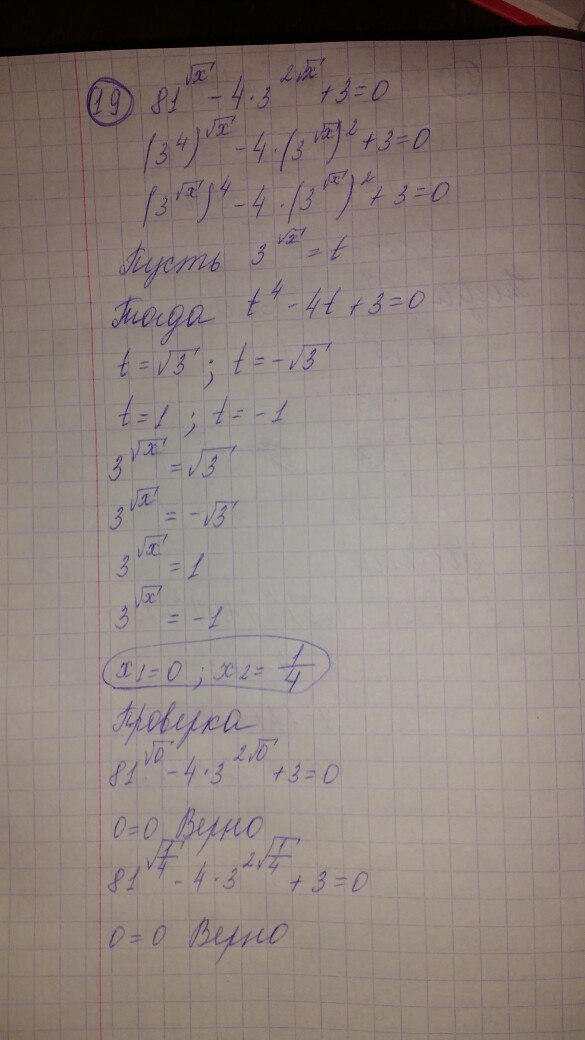 19 81^√x - 4·3^2√x + 3 = 0
(3^4)^√x - 4·(3^√x)^2 + 3 = 0
(3^√x)^4 - 4·(3^√x)^2 + 3 = 0
Пусть 3^√x = t
Тогда t^4 - 4t + 3 = 0
t = √3 ; t = -√3
t = 1 ; t = -1
3^√x = √3
3^√x = -√3
3^√x = 1
3^√x = -1
x1 = 0 ; x2 = 1/4
Проверка
81^√0 - 4·3^2√0 + 3 = 0
0 = 0 Верно
81^√(1/4) - 4·3^2√(1/4) + 3 = 0
0 = 0 Верно